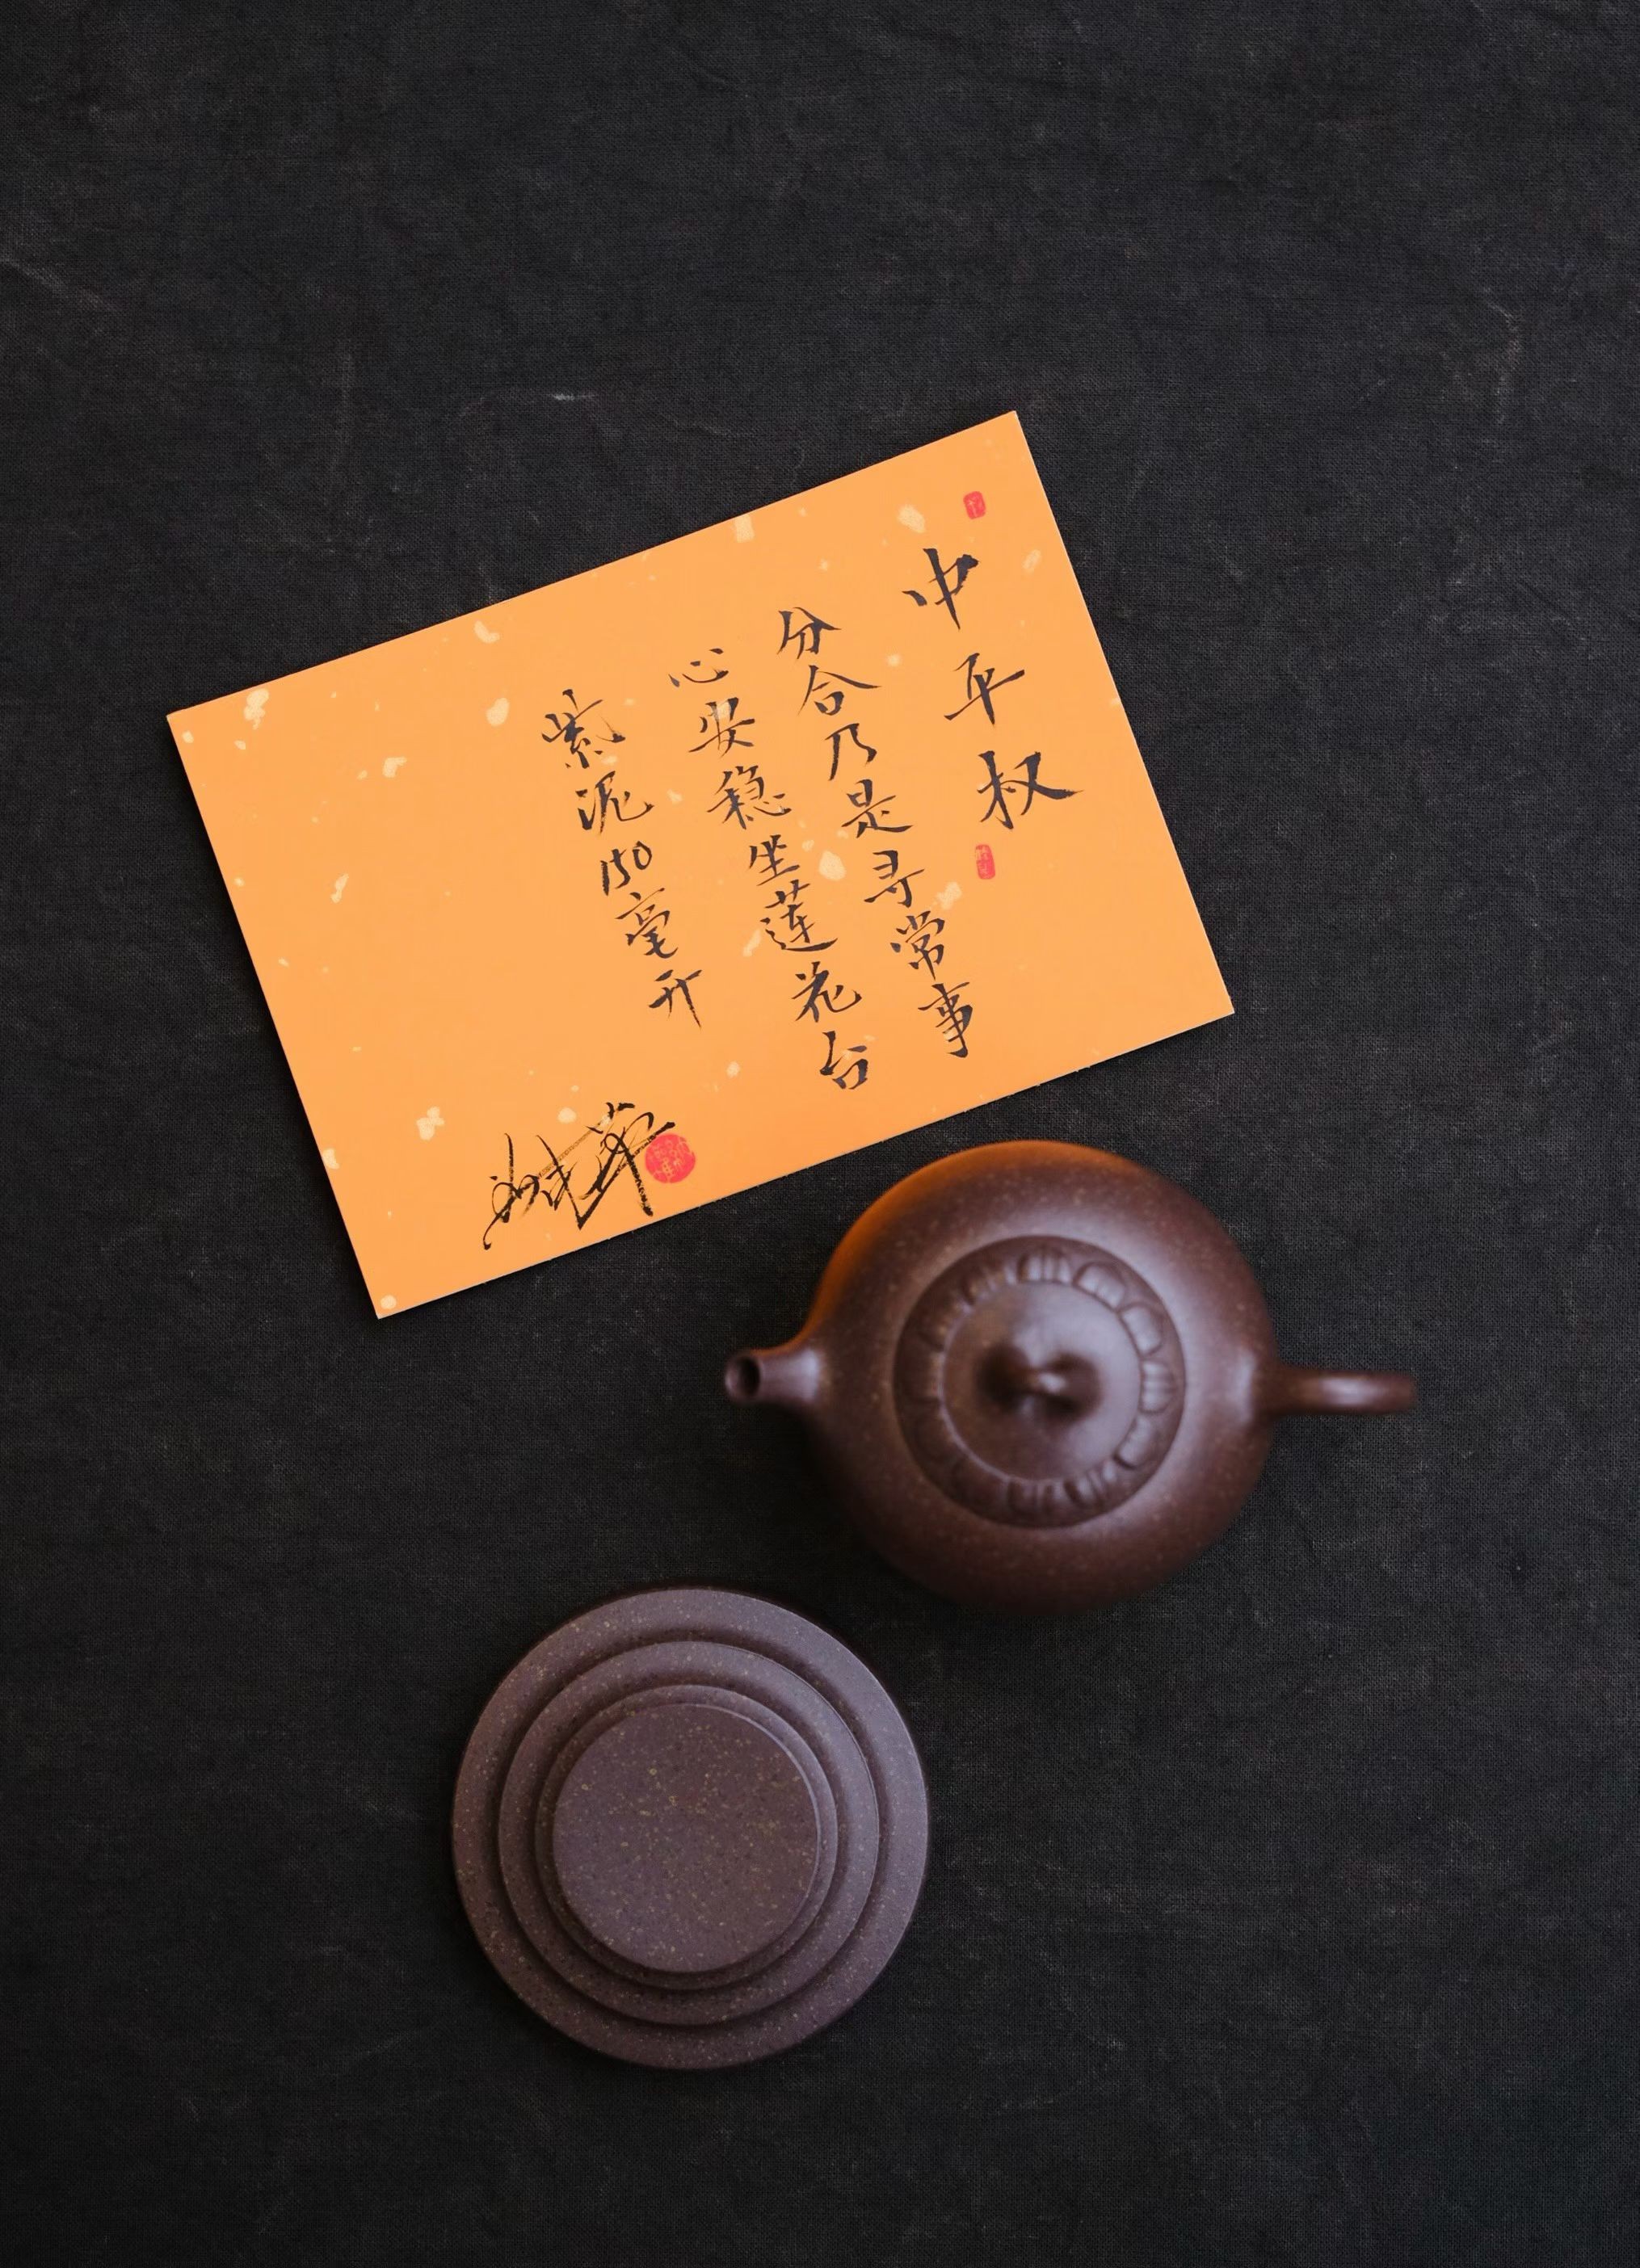 中平权
分合乃是寻常事
心安稳坐莲花台
紫泥150毫升